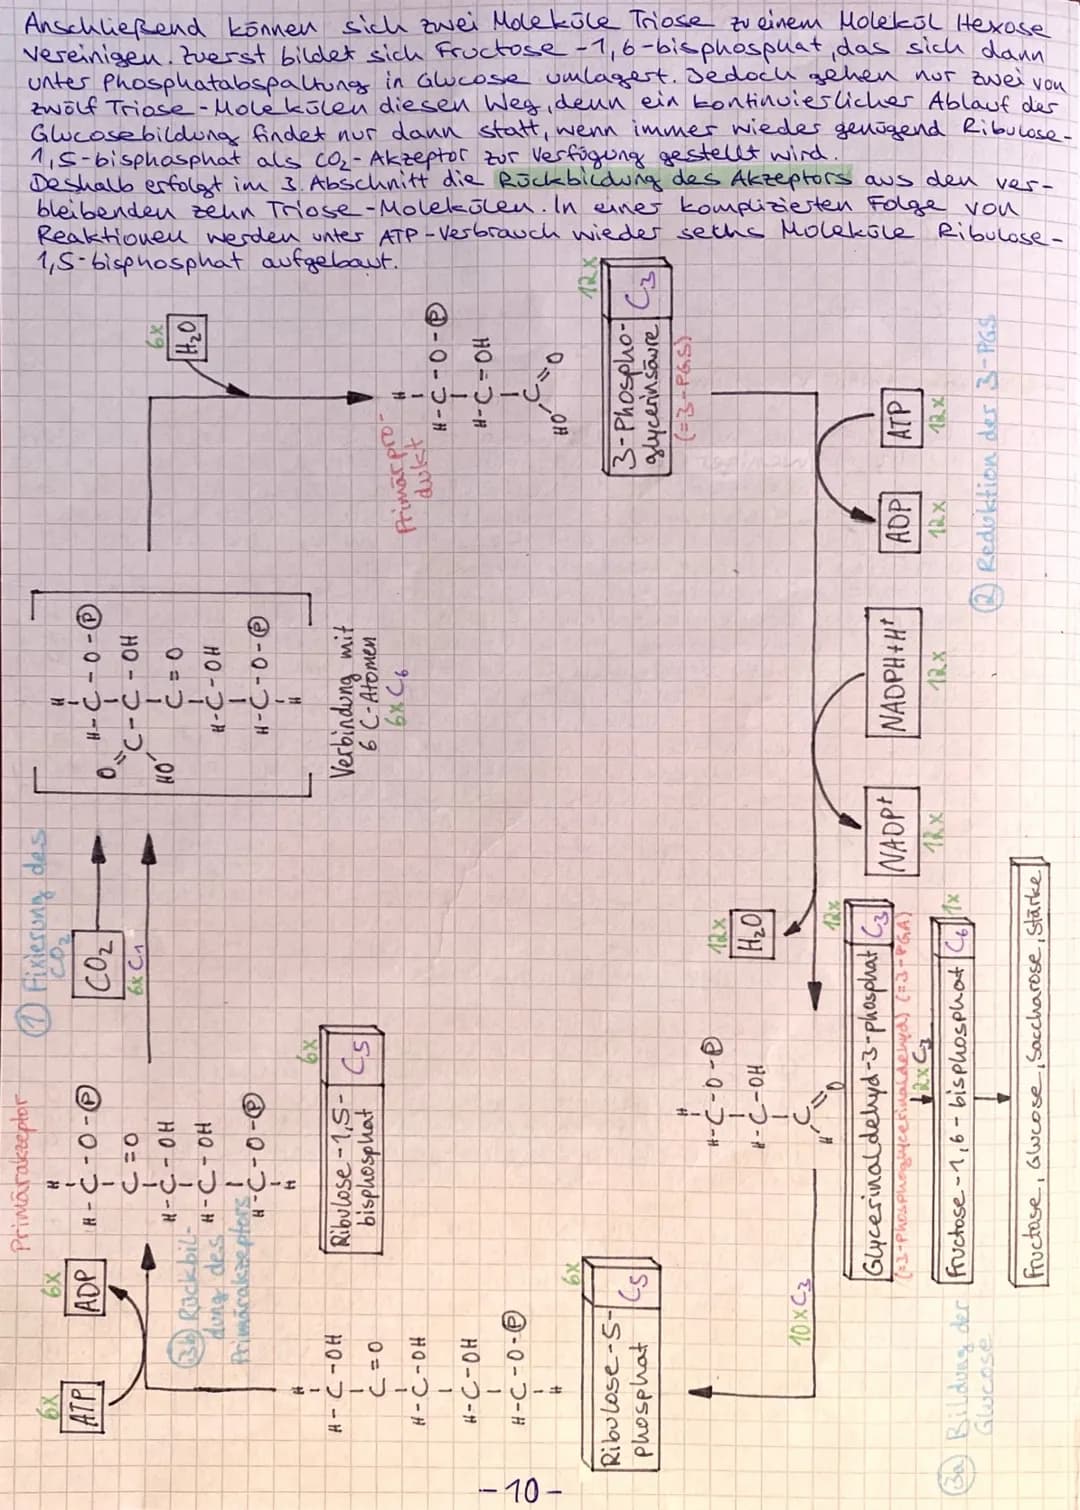 Anschließend können sich zwei Moleküle Triose zu einem Molekül Hexose
vereinigen. Zuerst bildet sich Fructose-1,6-bisphosphat, das sich dann
unter Phosphatabspaltung in Glucose umlagert. Jedoch gehen nur zwei von
zwölf Triose-Molekülen diesen Weg, denn ein kontinuierlicher Ablauf der
Glucosebildung findet nur dann statt, wenn immer wieder genügend Ribulose-
1,5-bisphosphat als CO₂-Akzeptor zur Verfügung gestellt wird.
Deshalb erfolgt im 3. Abschnitt die Rückbildung des Akzeptors aus den ver-
bleibenden zehn Triose-Molekülen. In einer komplizierten Folge von
Reaktionen werden unter ATP-Verbrauch wieder sechs Moleküle Ribulose-
1,5-bisphosphat aufgebaut.
Primärakzeptor
H
H-C-O-Ⓟ
C=O
H-C-OH
H-C-OH
H-C-O-Ⓟ
H
6x
Ribulose-1,5-
bisphosphat
C5
① Fixierung des
CO₂
CO₂
6x C1
H
H-C-O-Ⓟ
O=C-C-OH
HO
C=O
H-C-OH
H-C-O-Ⓟ
H
Verbindung mit
6 C-Atomen
6x C6
6x
H₂O
Primärpro-
dukt
H
H-C-O-Ⓟ
H-C=OH
C=O
HO
12x
3-Phospho-
glycerinsäure
C3
(=3-PGS)
② Reduktion der 3-PGS
ATP
12x
ADP
12x
NADPH+H⁺
12x
NADP⁺
12x
12x
H₂O
H
H-C-O-Ⓟ
H-C-OH
C=O
H
12x
Glycerinaldehyd-3-phosphat C3
(=3-Phosphoglycerinaldehyd) (=3-PGA)
2x C3
Fructose-1,6-bisphosphat C6
1x
Fructose, Glucose, Saccharose, Stärke
③a Bildung der
Glucose
10x C3
6x
Ribulose-5-
phosphat
C5
H
H-C-OH
C=O
H-C-OH
H-C-OH
H-C-O-Ⓟ
H
6x
ATP
6x
ADP
③b Rückbil-
dung des
Primärakzeptors
-10-